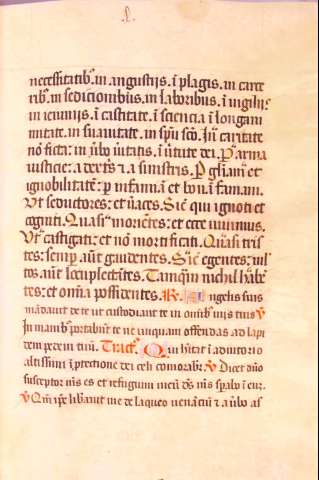 necessitatib(us). in angustijs. ī plagis. in carce
rib(us). in sedicionibus. in laboribus. ī vigilijs
in ieiunijs. ī castitate. ī sciencia. ī longani
mitate. in suauitate. in spū scō. In caritate
nō ficta: in ūbo ūitatis. ī ūtute dei. P arma
iusticie: a dextis et a sinistris. P gliam et
ignobilitatē: p infamiā et bonā famam.
Ut seductores: et ūaces. Sic qui ignoti et
cogniti. Quasi morietes: et ecce viuimus.
Ut castigati: et nō mortificati. Quasi tris
tes: semp aut gaudentes. Sic egentes: mul
tos aut locupletātes. Tanqm nichil habē
tes: et omīa possidentes. R. Angelis suis
mādauit de te ut custodiant te in omīb viis tuis V
In manib portabūt te ne unquam offendas ad lapi
dem pedem tuū. Tract. Qui hītat ī adiutorio
altissimi ī protectione dei celi comorabit. V Dicet dño
susceptor m̄s es et refugium meū ds m̄s spabo ī eum.
V Qm ipe liberauit me de laqueo venanciū et a ūbo as